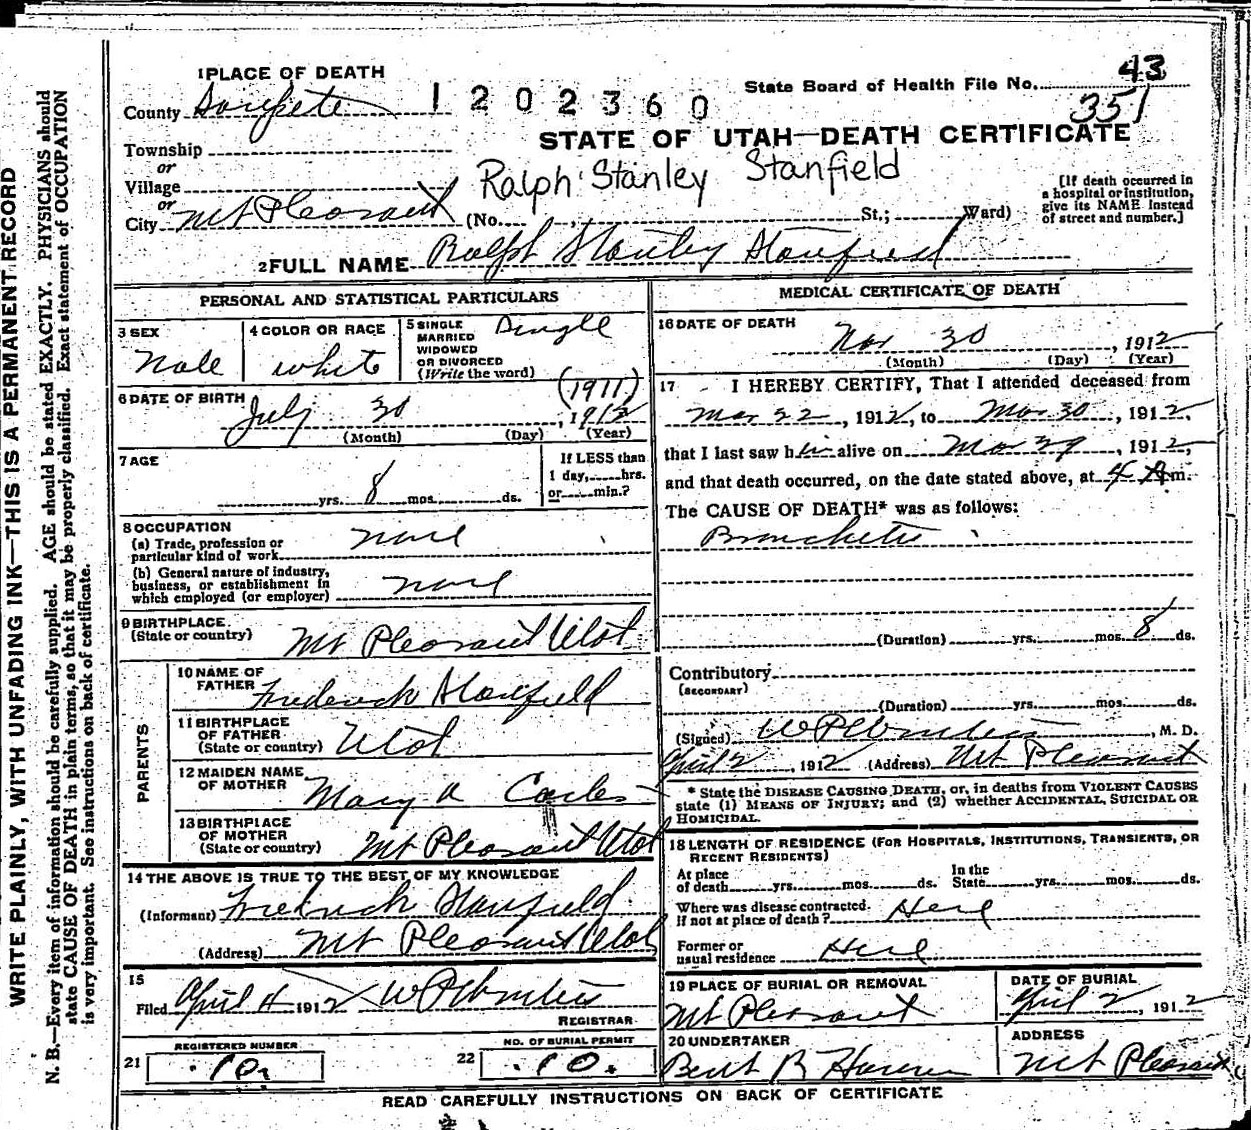 WRITE PLAINLY, WITH UNFADING INK—THIS IS A PERMANENT RECORD
N. B.—Every item of information should be carefully supplied. AGE should be stated EXACTLY. PHYSICIANS should
state CAUSE OF DEATH in plain terms, so that it may be properly classified. Exact statement of OCCUPATION
is very important. See instructions on back of certificate.
1 PLACE OF DEATH
County Sanpete
1202360
State Board of Health File No. 43
351
STATE OF UTAH—DEATH CERTIFICATE
Township
or
Village
or
City Mt Pleasant
Ralph Stanley Stanfield
(No. , St.; Ward)
[If death occurred in
a hospital or institution,
give its NAME instead
of street and number.]
2 FULL NAME Ralph Stanley Stanfield
PERSONAL AND STATISTICAL PARTICULARS
3 SEX
Male
4 COLOR OR RACE
white
5 SINGLE
MARRIED
WIDOWED
OR DIVORCED
(Write the word)
Single
6 DATE OF BIRTH
(1911)
July 30, 1912
(Month) (Day) (Year)
7 AGE
yrs. 8 mos. ds.
If LESS than
1 day, hrs.
or min.?
8 OCCUPATION
(a) Trade, profession or
particular kind of work none
(b) General nature of industry,
business, or establishment in
which employed (or employer) none
9 BIRTHPLACE
(State or country) Mt Pleasant Utah
PARENTS
10 NAME OF
FATHER Frederick Stanfield
11 BIRTHPLACE
OF FATHER
(State or country) Utah
12 MAIDEN NAME
OF MOTHER Mary A
13 BIRTHPLACE
OF MOTHER
(State or country) Mt Pleasant Utah
14 THE ABOVE IS TRUE TO THE BEST OF MY KNOWLEDGE
(Informant) Fredrick Stanfield
(Address) Mt Pleasant Utah
15
Filed April 4 1912
REGISTRAR
21 REGISTERED NUMBER
10.
22 NO. OF BURIAL PERMIT
10.
MEDICAL CERTIFICATE OF DEATH
16 DATE OF DEATH
Mar 30, 1912
(Month) (Day) (Year)
17 I HEREBY CERTIFY, That I attended deceased from
Mar 22, 1912, to Mar 30, 1912,
that I last saw him alive on Mar 29, 1912,
and that death occurred, on the date stated above, at 4 A m.
The CAUSE OF DEATH* was as follows:
Bronchetis
(Duration) yrs. mos. 8 ds.
Contributory
(SECONDARY)
(Duration) yrs. mos. ds.
(Signed) , M. D.
April 2, 1912 (Address) Mt Pleasant
* State the DISEASE CAUSING DEATH, or, in deaths from VIOLENT CAUSES
state (1) MEANS OF INJURY; and (2) whether ACCIDENTAL, SUICIDAL OR
HOMICIDAL.
18 LENGTH OF RESIDENCE (FOR HOSPITALS, INSTITUTIONS, TRANSIENTS, OR
RECENT RESIDENTS)
At place
of death yrs. mos. ds.
In the
State yrs. mos. ds.
Where was disease contracted.
if not at place of death? Here
Former or
usual residence Here
19 PLACE OF BURIAL OR REMOVAL
Mt Pleasant
DATE OF BURIAL
April 2, 1912
20 UNDERTAKER
Bent R
ADDRESS
Mt Pleasant
READ CAREFULLY INSTRUCTIONS ON BACK OF CERTIFICATE